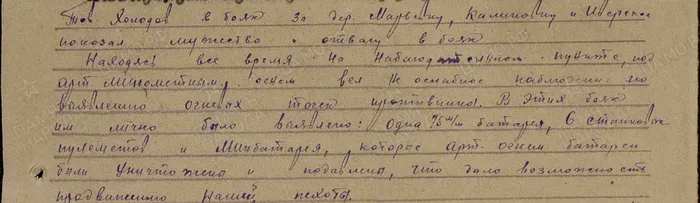 Тов. Холодов в боях за дер. Марьевку, Калиновку и
показал мужество и отвагу в боях
Находясь все время на наблюдательном пункте, под
арт. минометным огнем вел не ослабное наблюдение по
выявлению огневых точек противника. В этих боях
им лично было выявлено: одна 75 м/м батарея, 6 станковых
пулеметов и Минбатарея, которые арт. огнем батареи
были уничтожены и подавлены, что дало возможность
продвижению нашей пехоты.